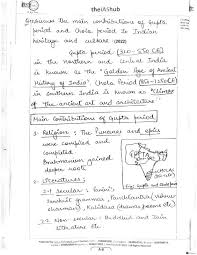 theIAShub
Discuss the main contributions of Gupta
period and Chola period to Indian
heritage and culture (2022)
Gupta period (310-550 CE)
in the Northern and central India
is known as the "Golden Age of Ancient
History of India". Chola Period (850-1250CE)
in southern India is known as "Climax
of the ancient art and architecture
Main Contributions of Gupta period
1. Religion : The Puranas and epics
were compiled and
completed
Brahmanism gained
deeper roots
CHOLAS
2. Literatures :
2.1. Secular :
Sanskrit grammar, Panchtantra
Kalidasa dramas poems etc
2.2. Non secular : Buddhist and Jain
literature etc.